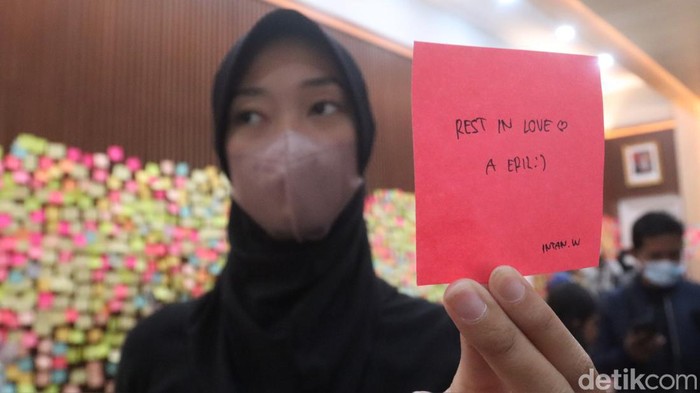 REST IN LOVE ♡
A ERIL:)
INTAN.W
detikcom